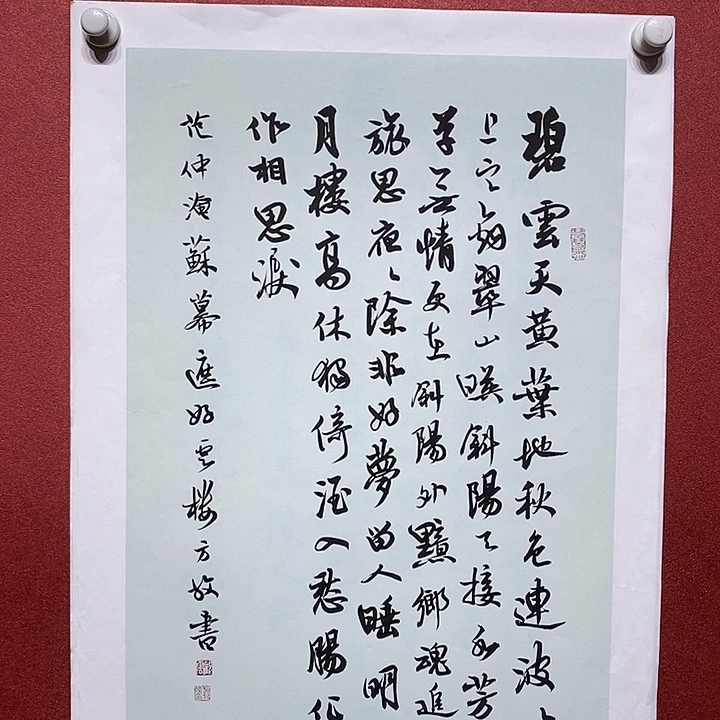 碧雲天黄葉地秋色連波
上寒烟翠山暎斜陽天接水芳
草無情更在斜陽外黯鄉魂追
旅思夜〻除非好夢留人睡明
月樓高休獨倚酒入愁腸化
作相思淚
范仲淹蘇幕遮好雲樓方書